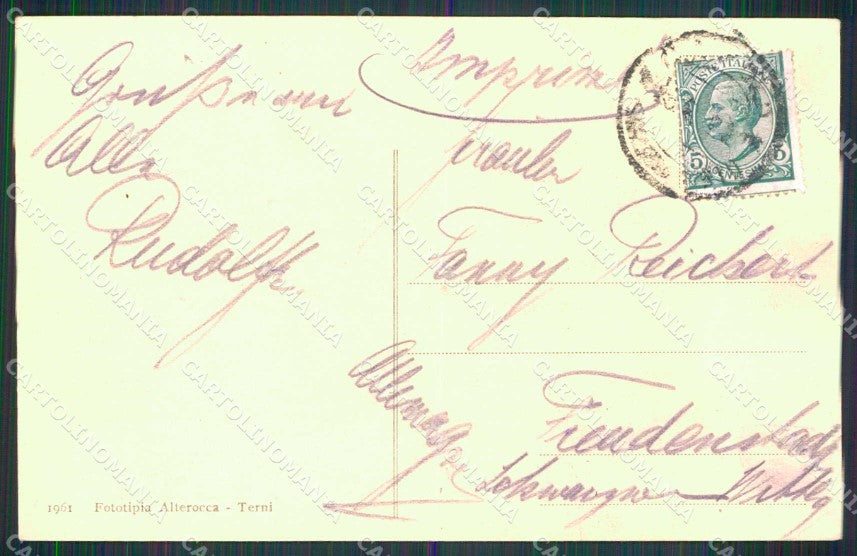 Gruß an
Alle
Rudolf
Imprimé
Fräulein
Fanny Reichert
Freudenstadt
Schwarzw. Wttbg
Allemagne
POSTE ITALIANE
5 5
1961 Fototipia Alterocca - Terni
CARTOLINOMANIA